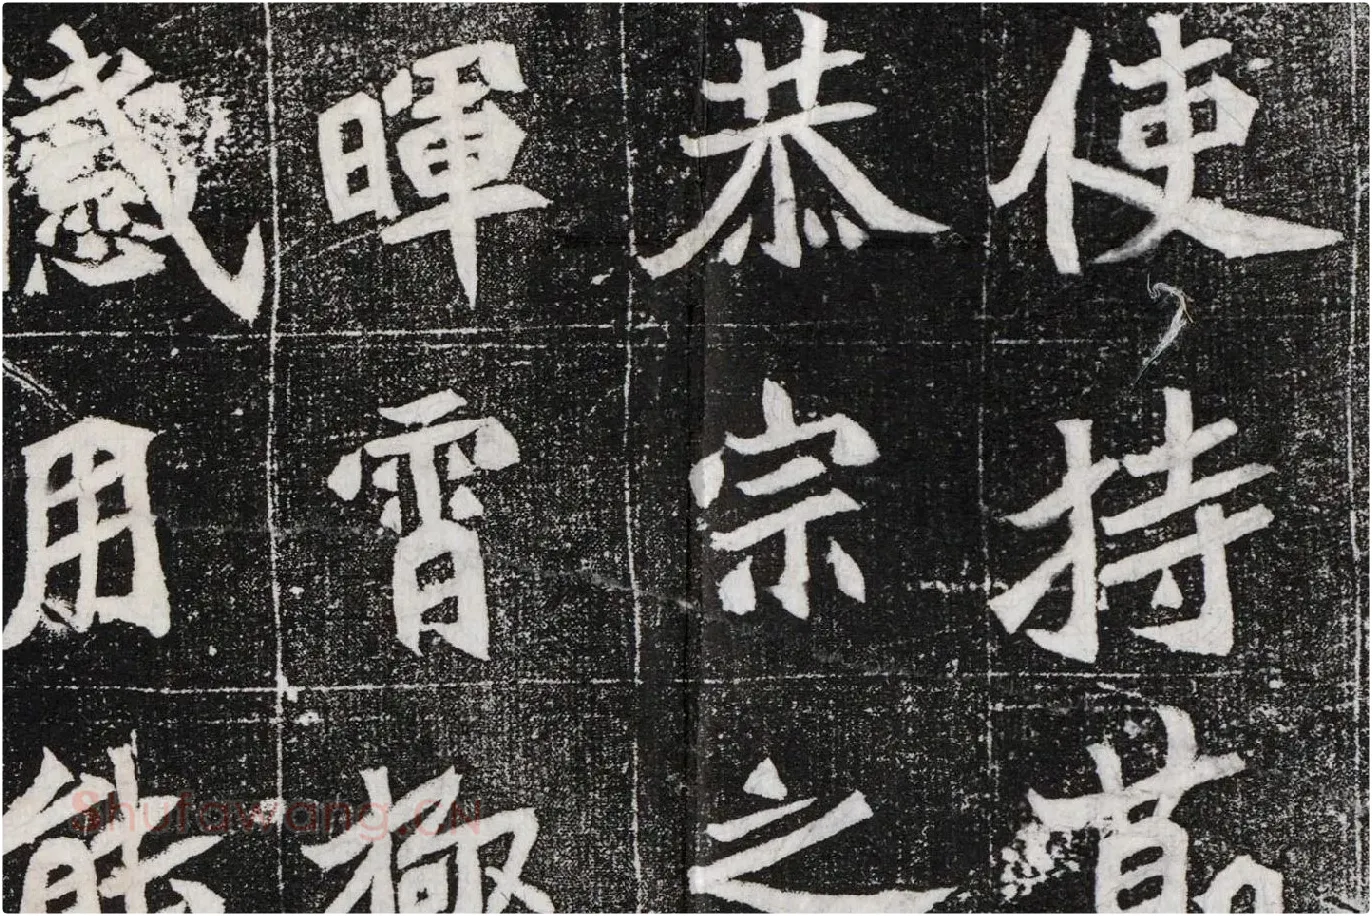 使持莭
恭宗之
暉霄極
慼用能
Shufawang.CN